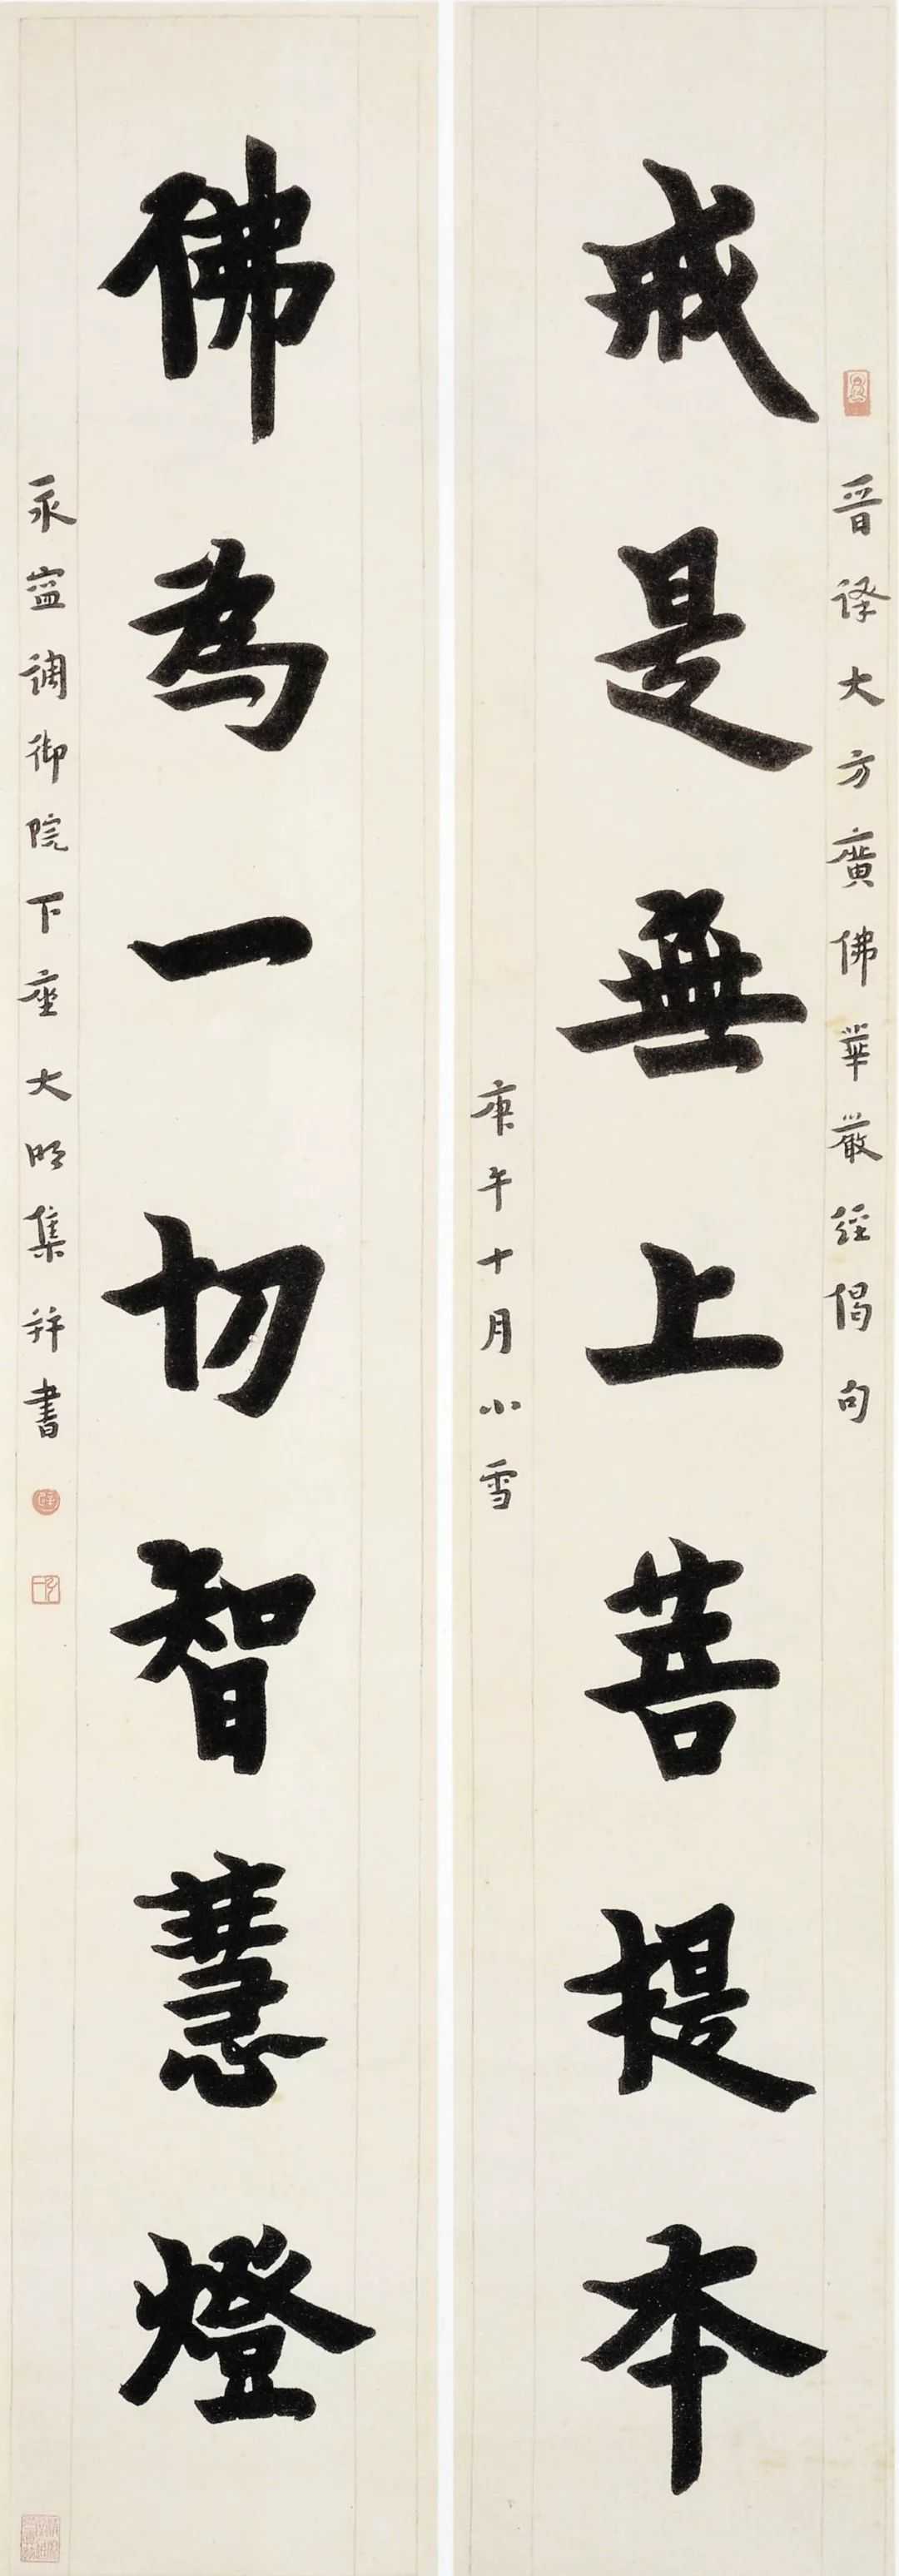 晉譯大方廣佛華嚴經偈句
戒是無上菩提本
庚午十月小雪
佛為一切智慧燈
永寍調御院下座大明集並書